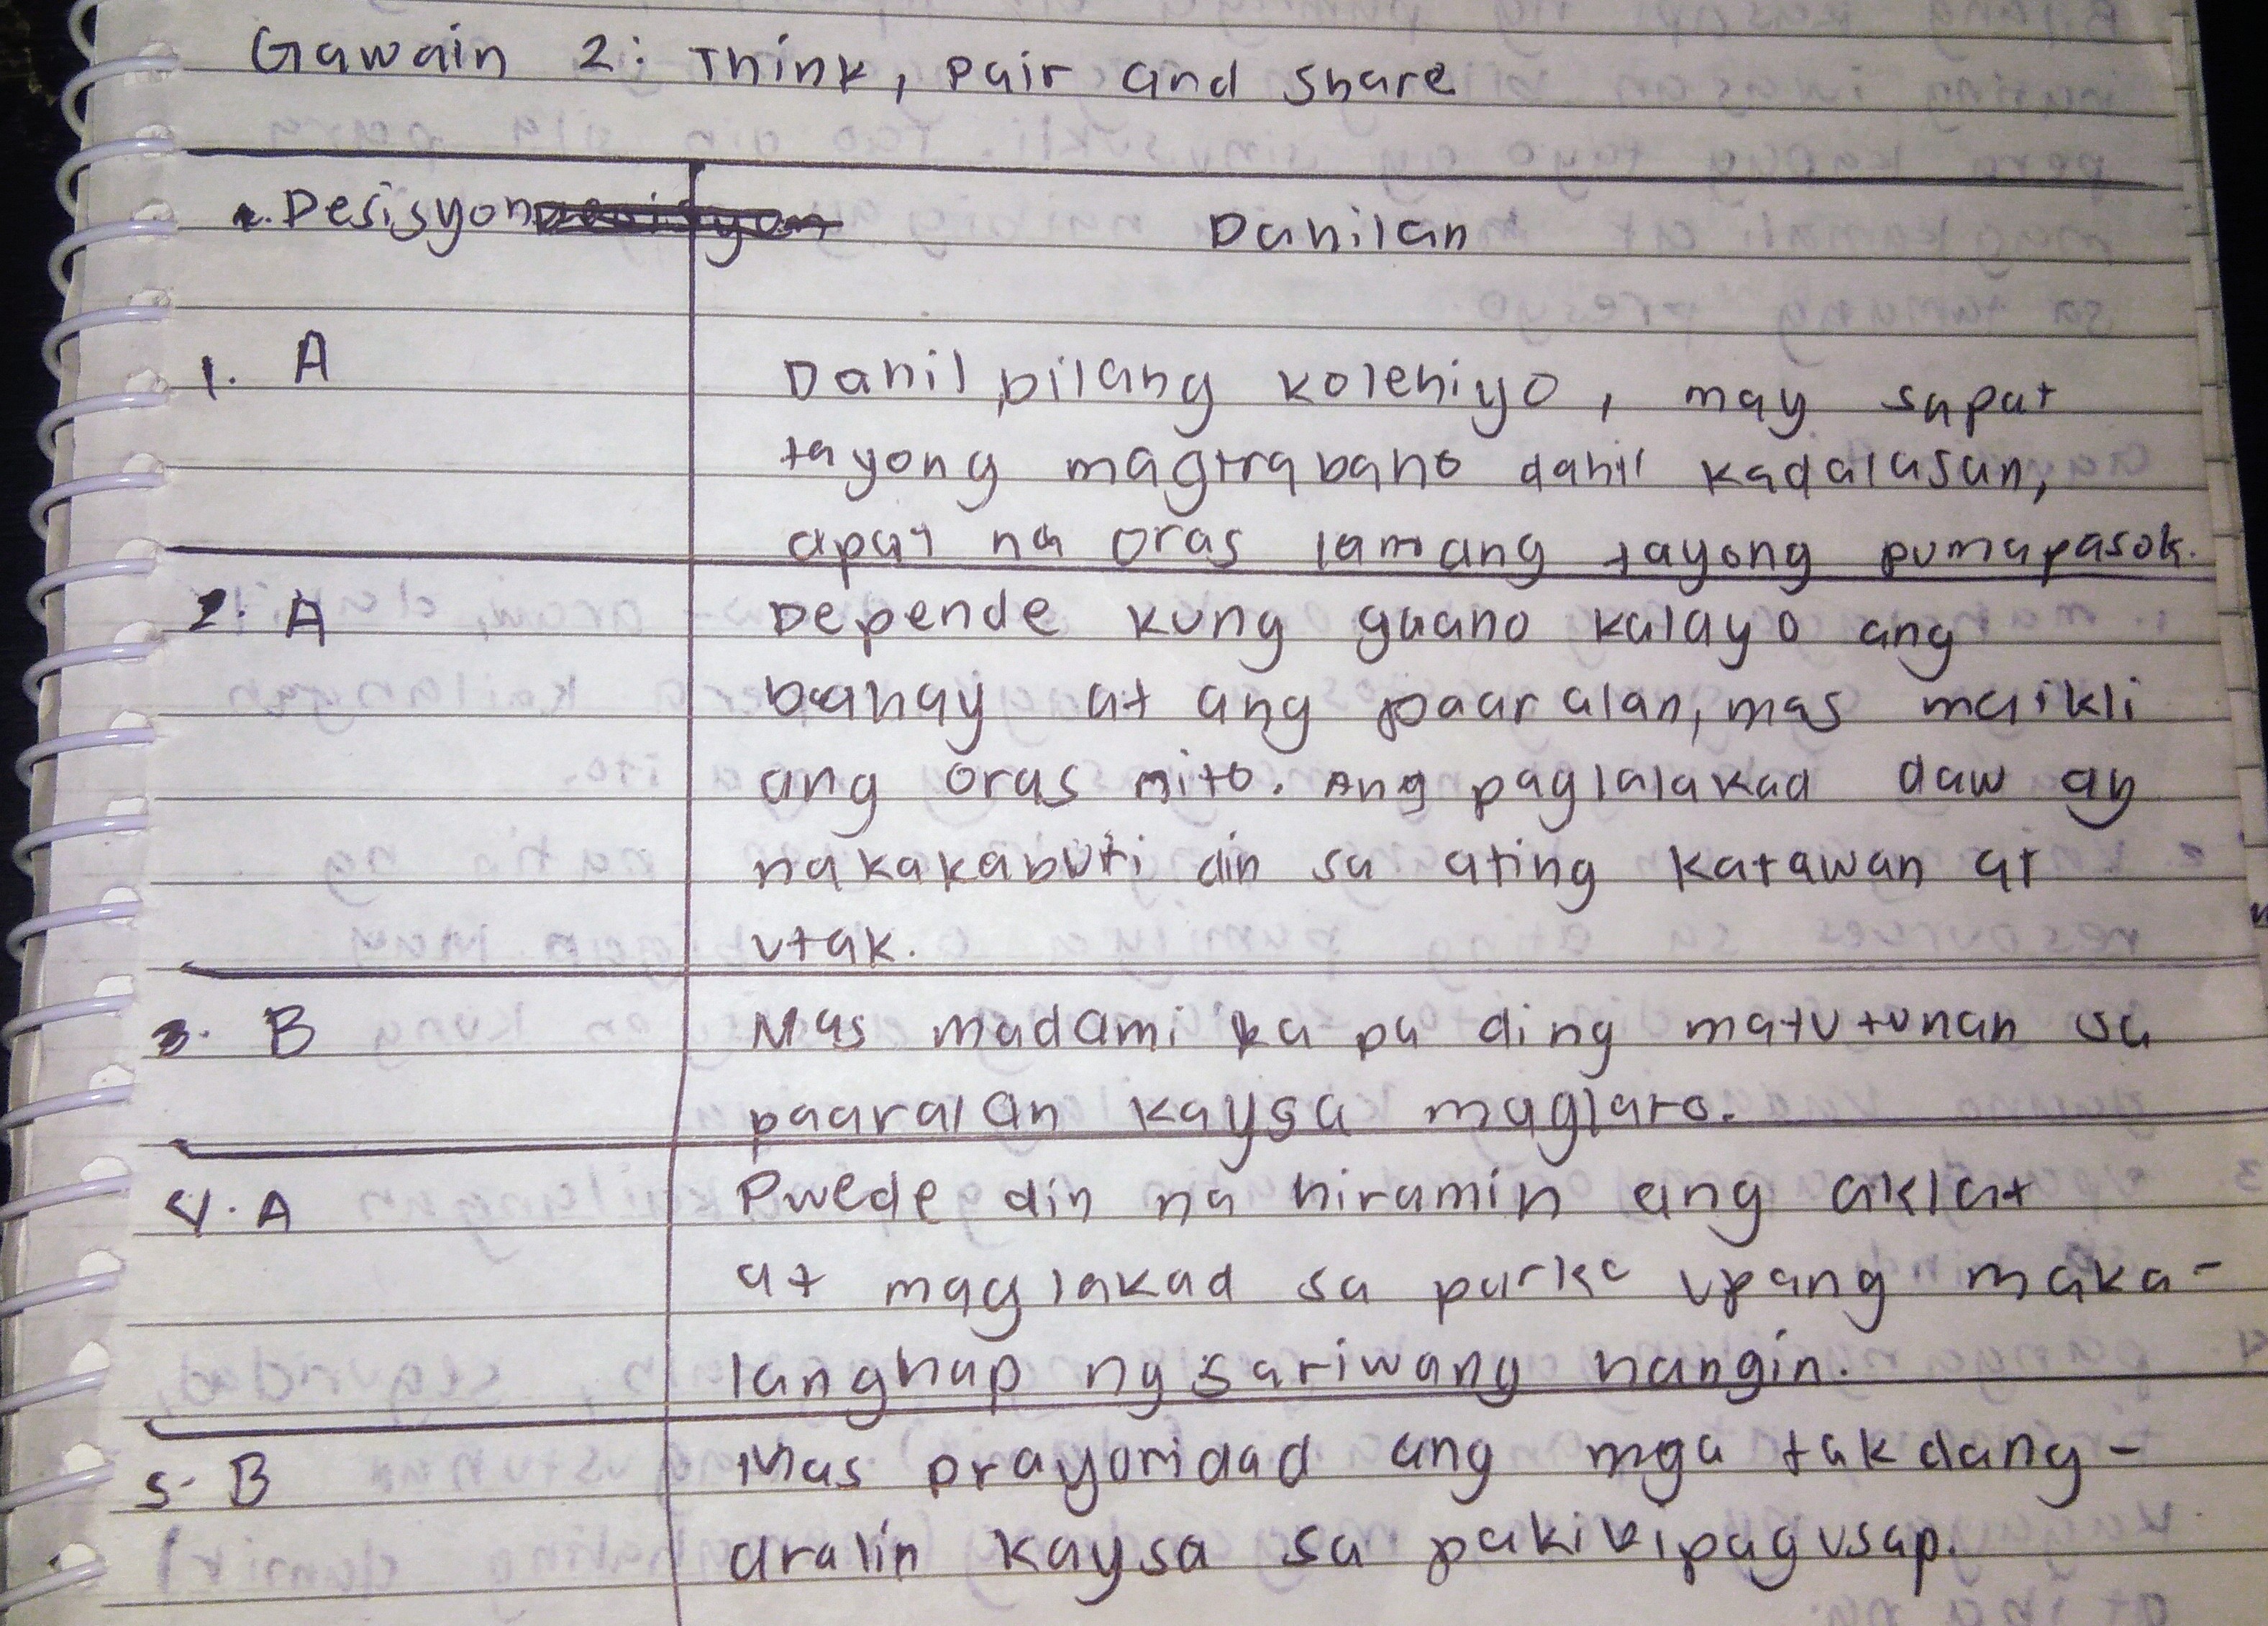 Gawain 2: Think, Pair and Share
Desisyon Dahilan
1. A Dahil, bilang kolehiyo, may sapat
tayong magtrabaho dahil kadalasan,
apat na oras lamang tayong pumapasok.
2. A Depende kung gaano kalayo ang
bahay at ang paaralan, mas maikli
ang oras nito. Ang paglalakad daw ay
nakakabuti din sa ating katawan at
utak.
3. B Mas madami ka pa ding matutunan sa
paaralan kaysa maglaro.
4. A Pwede din na hiramin ang aklat
at maglakad sa parke upang maka-
langhap ng sariwang hangin.
5. B Mas prayoridad ang mga takdang-
aralin kaysa sa pakikipagusap.